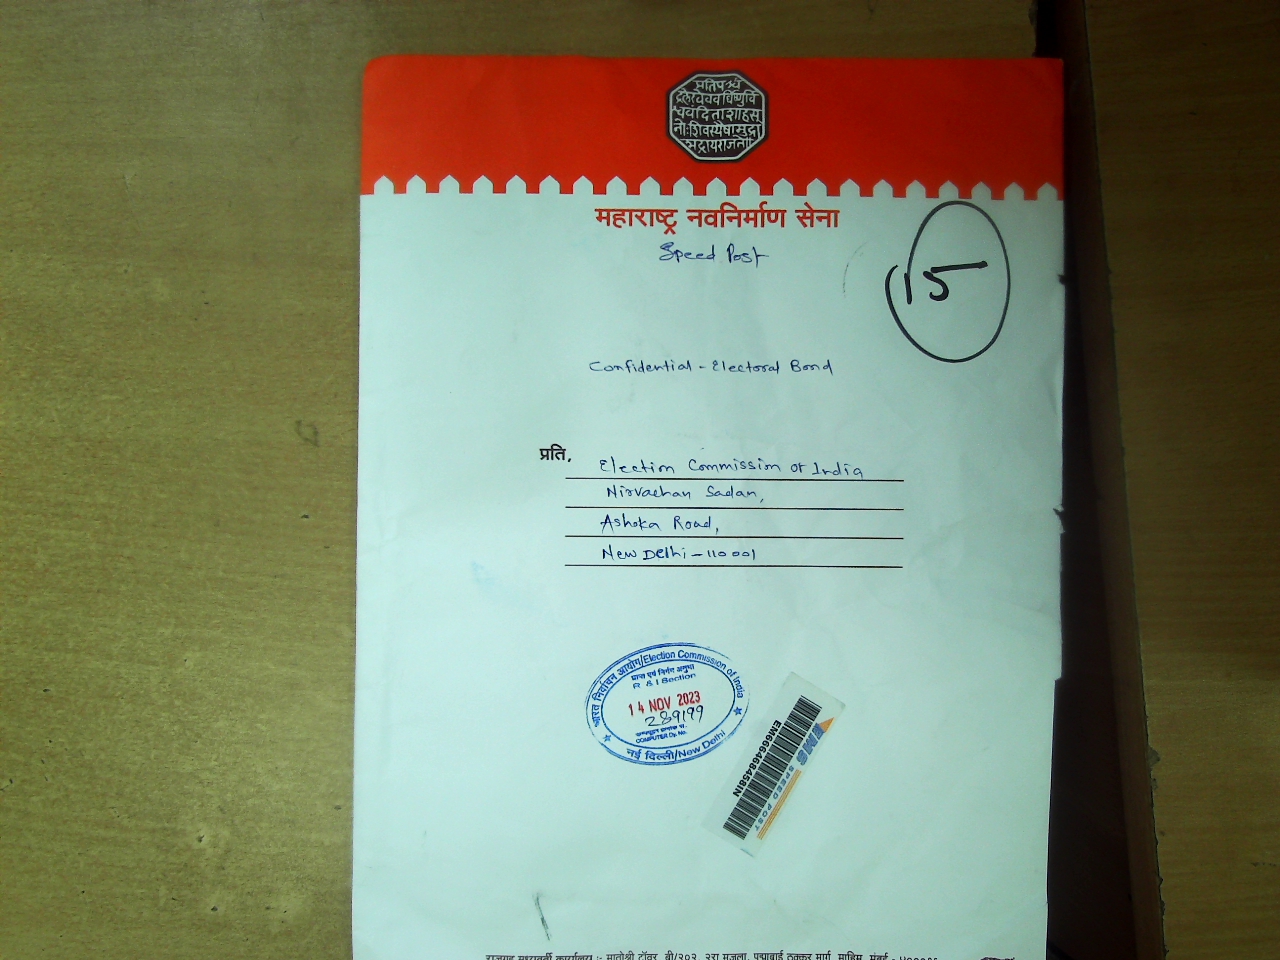 प्रतिपच्चं
द्रलेखेव वर्धिष्णुर्वि
श्ववंदिता शाहसू
नोः शिवस्यैषा मुद्रा
भद्राय राजते
महाराष्ट्र नवनिर्माण सेना
Speed Post
15
Confidential - Electoral Bond
प्रति,
Election Commission of India
Nirvachan Sadan,
Ashoka Road,
New Delhi - 110001
भारत निर्वाचन आयोग/Election Commission of India
R & I Section
14 NOV 2023
289199
COMPUTER Dy. No.
नई दिल्ली/New Delhi
EMS SPEED POST
EM666468458IN
राजगड मध्यवर्ती कार्यालय :- मातोश्री टॉवर, बी/२०२, २रा मजला, पद्माबाई ठक्कर मार्ग, माहिम, मुंबई -